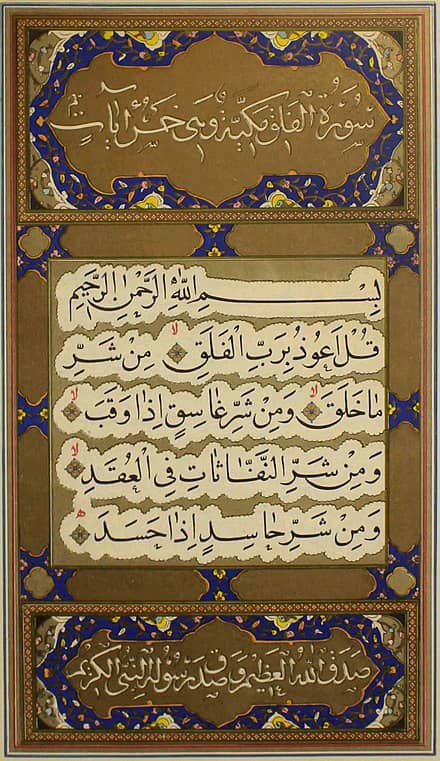 سورة الفلق مكية وهي خمس آيات
بِسْمِ اللّٰهِ الرَّحْمٰنِ الرَّحٖيمِ
قُلْ اَعُوذُ بِرَبِّ الْفَلَقِ ﴿لا﴾ مِنْ شَرِّ
مَا خَلَقَ ﴿لا﴾ وَمِنْ شَرِّ غَاسِقٍ اِذَا وَقَبَ ﴿لا﴾
وَمِنْ شَرِّ النَّفَّاثَاتِ فِى الْعُقَدِ ﴿لا﴾
وَمِنْ شَرِّ حَاسِدٍ اِذَا حَسَدَ
صدق الله العظيم وصدق رسوله النبى الكريم